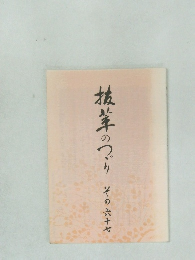 抜萃のつゞり その六十七